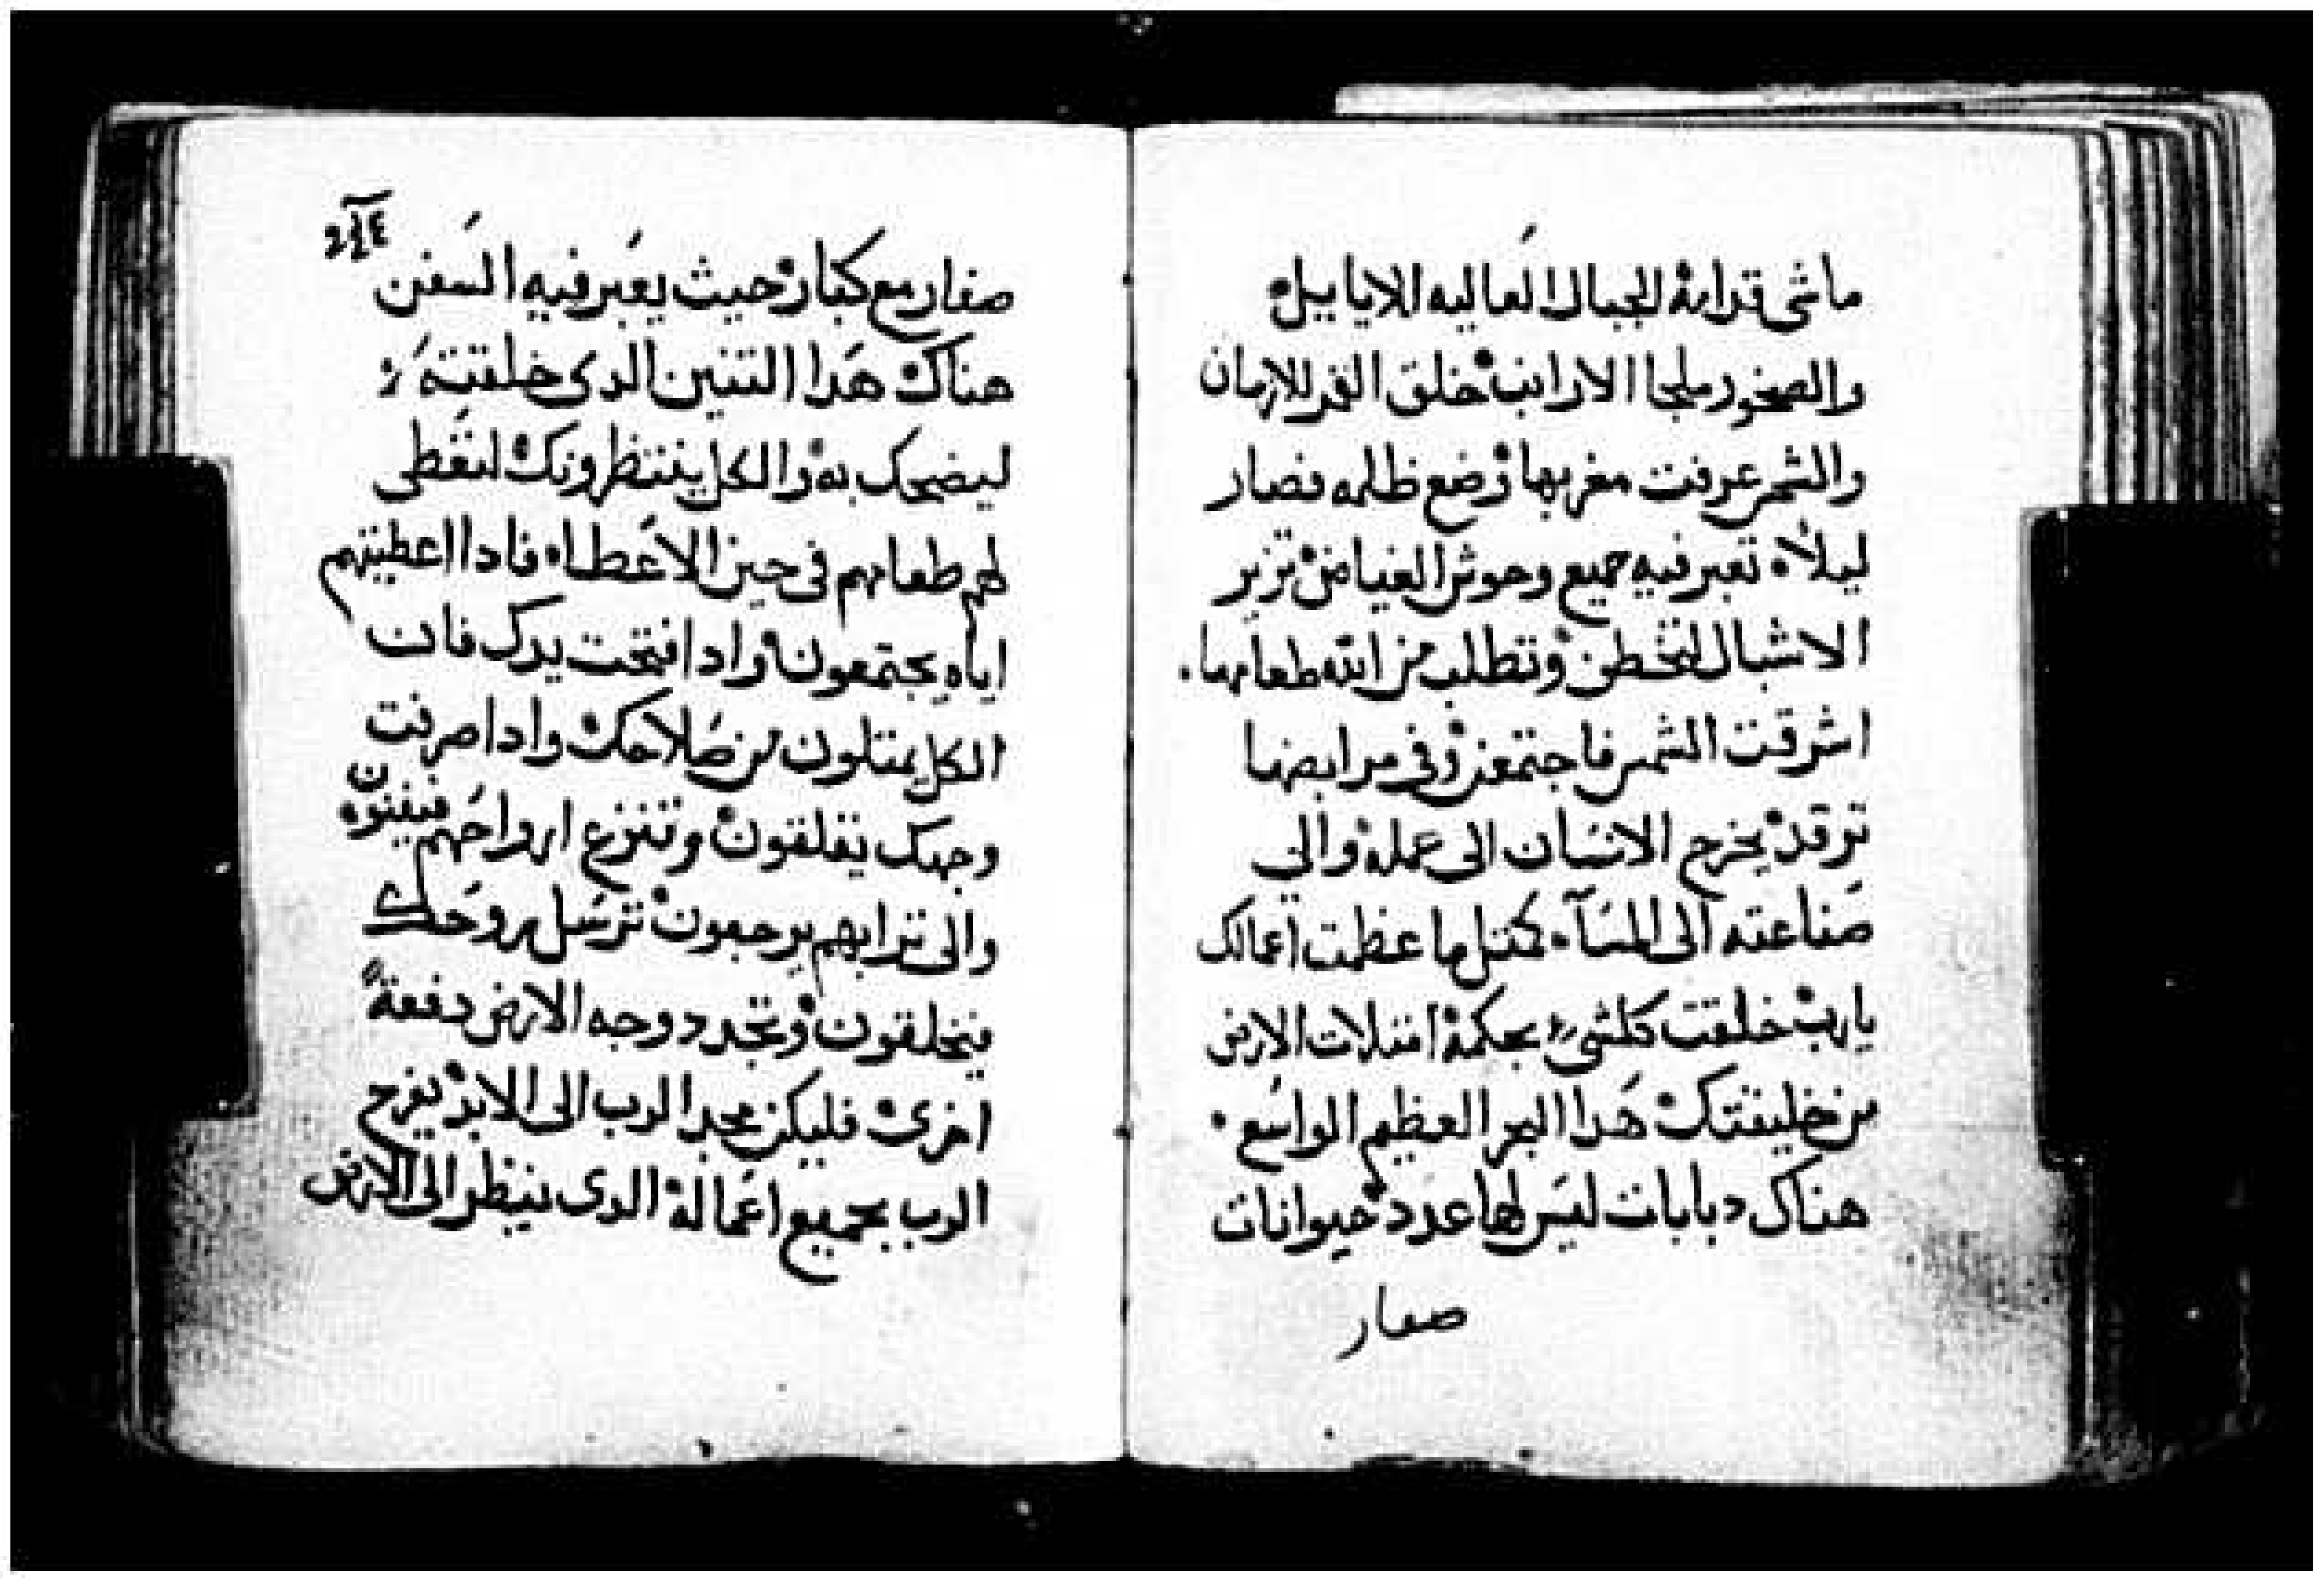 ماشي قدامه الجبال العاليه للاياييل
والصخور ملجا الارانب خلق القمر للازمان
والشمس عرفت مغربها وضع ظلمه فصار
ليلاً تعبر فيه جميع وحوش الغياض تزير
الاشبال لتخطن وتطلب من الله طعامها
اشرقت الشمس فاجتمعن وفي مرابضها
ترقد يخرج الانسان الى عمله والي
صناعته الى المسآء كمثل ما عظمت اعمالك
يارب خلقت كلشي بحكمة امتلات الارض
من خليقتك هدا البحر العظيم الواسع
هناك دبابات ليس لها عدد حيوانات
صغار
صغار مع كبار حيث يعبر فيه السفن
هناك هدا التنين الدى خلقته
ليضحك به والكل ينتظرونك لتعطى
لهم طعامهم فى حين الاعطاء فادا اعطيتهم
اياه يجتمعون وادا فتحت يدك فان
الكل يمتلون من صلاحك وادا صرفت
وجهك يقلقون وتنزع ارواحهم فيفنون
والى ترابهم يرجعون ترسل روحك
فيخلقون وتجدد وجه الارض دفعة
اخرى فليكن مجد الرب الى الابد يفرح
الرب بجميع اعماله الدى ينظر الى الارض